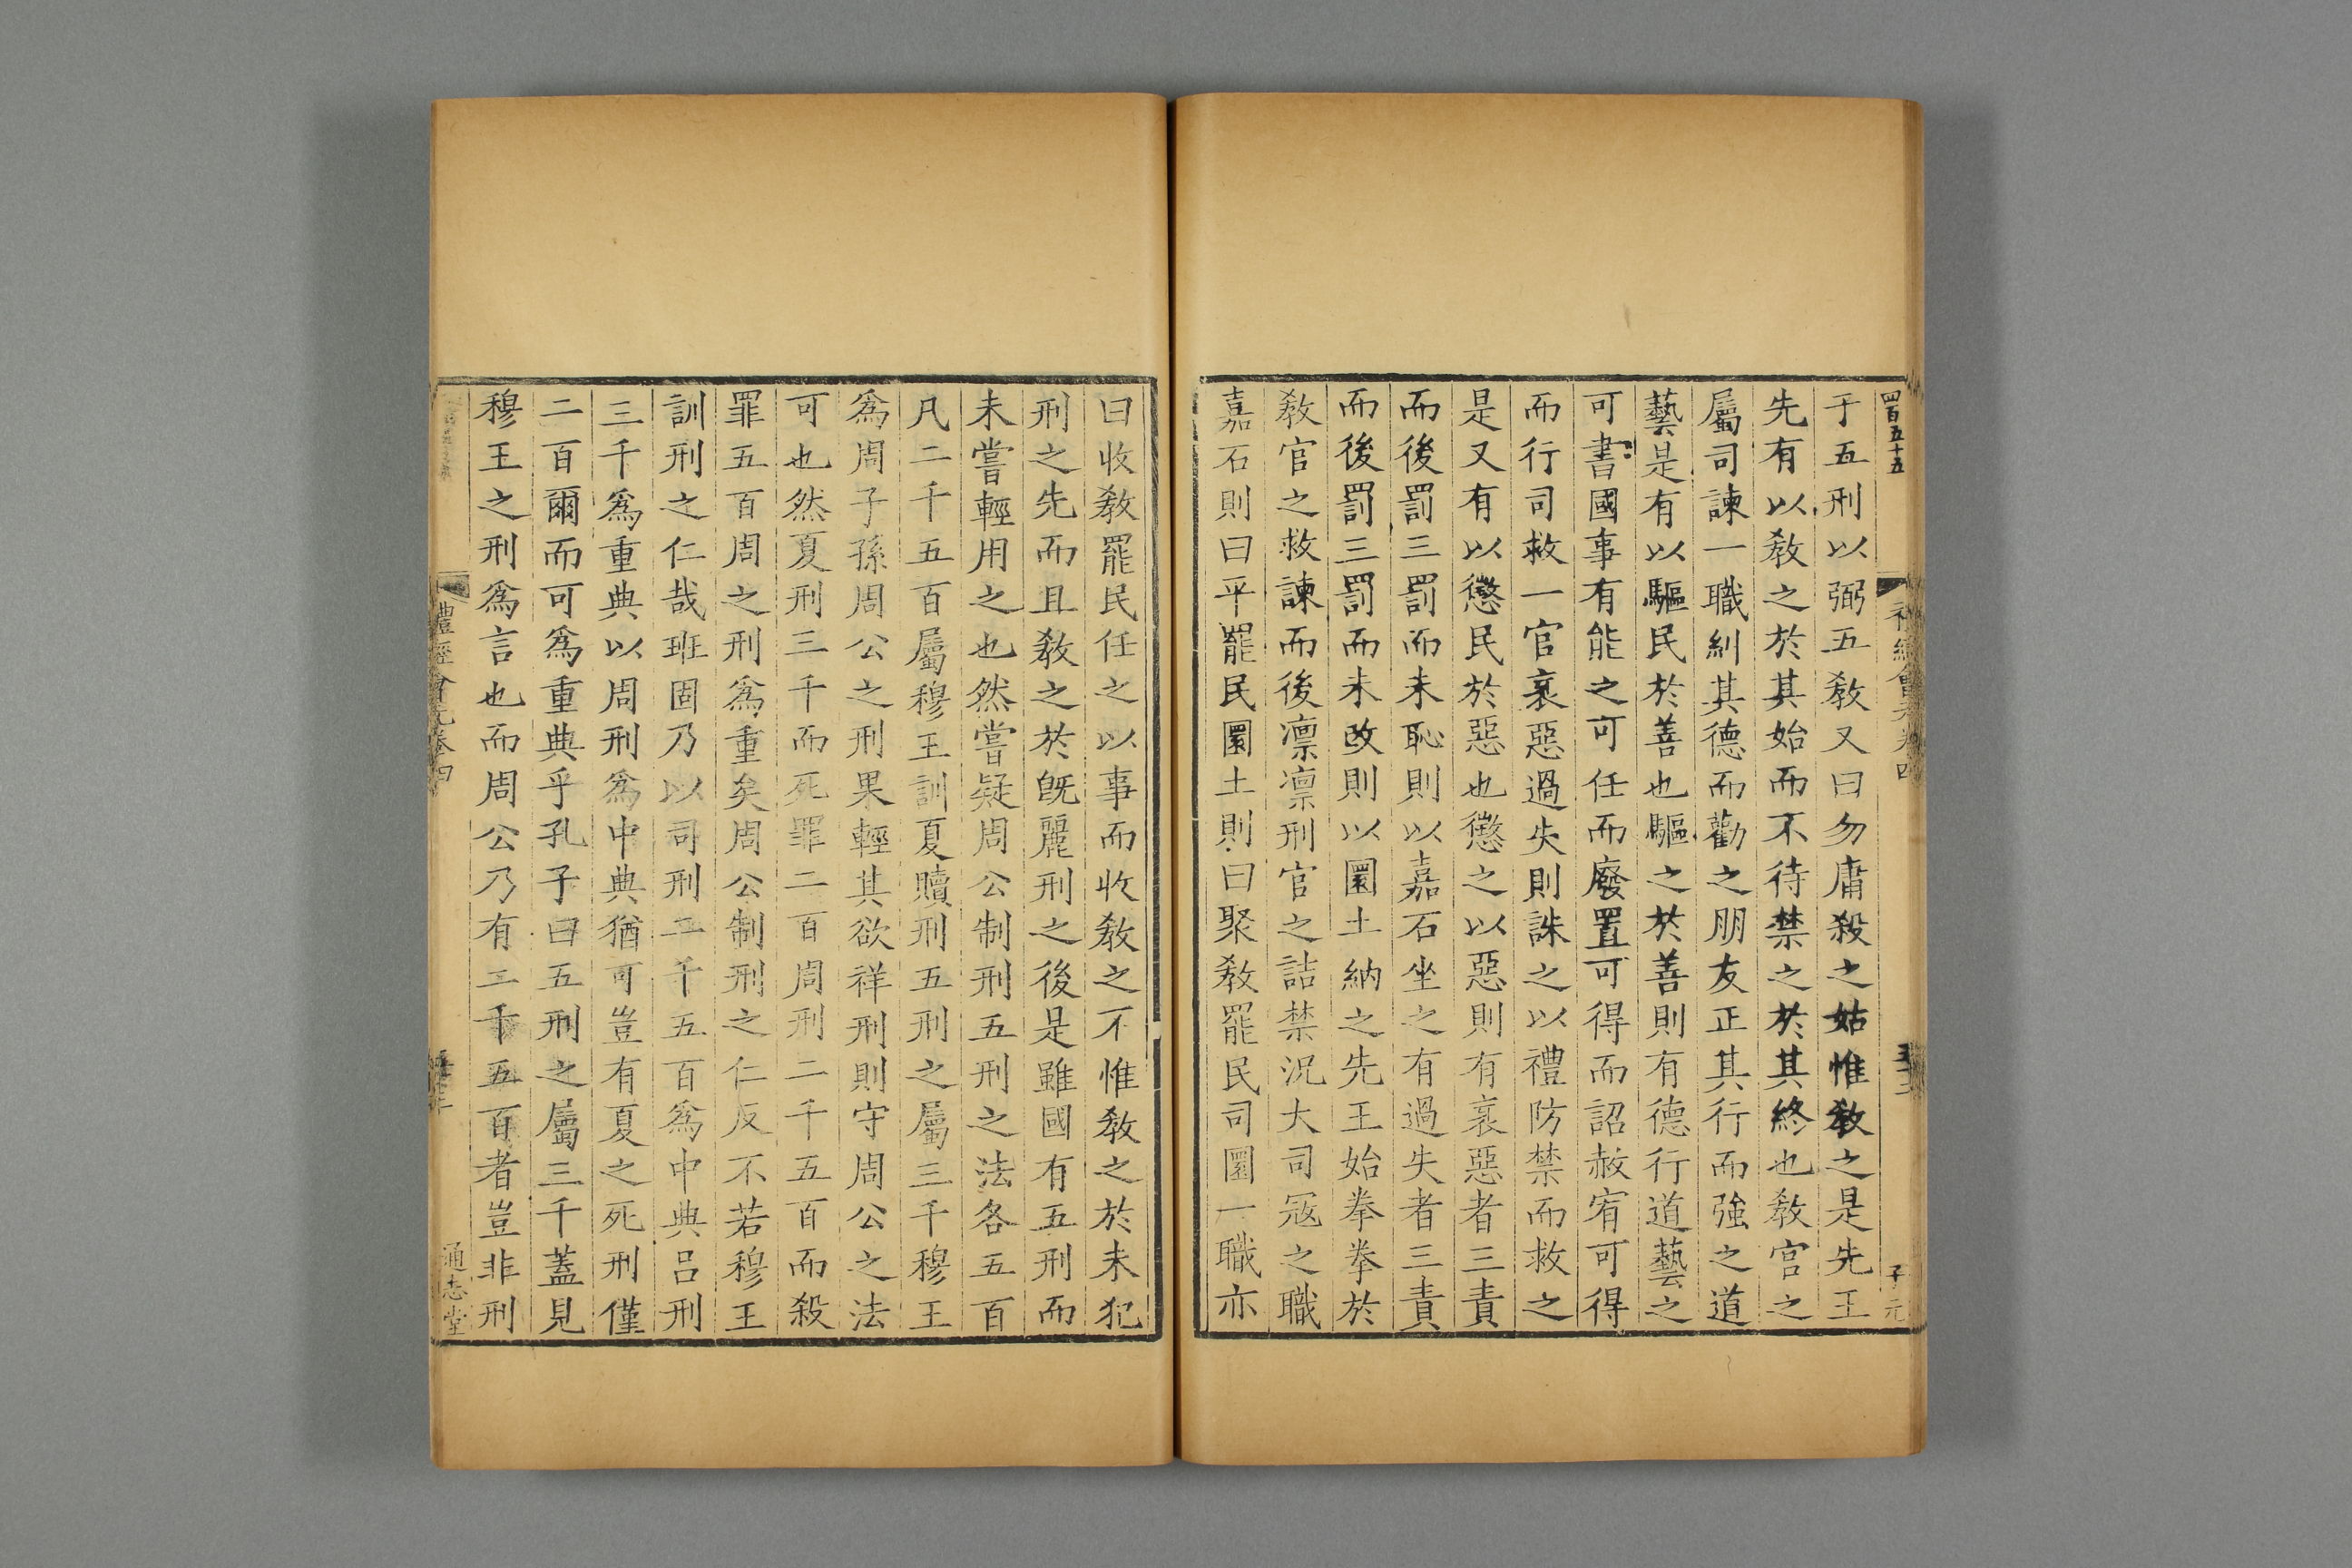 四百五十五
子元
于五刑以弼五敎又曰勿庸殺之姑惟敎之是先王
先有以敎之於其始而不待禁之於其終也敎官之
屬司諫一職糾其德而勸之朋友正其行而強之道
藝是有以驅民於善也驅之於善則有德行道藝之
可書國事有能之可任而廢置可得而詔赦宥可得
而行司救一官衺惡過失則誅之以禮防禁而救之
是又有以懲民於惡也懲之以惡則有衺惡者三責
而後罰三罰而未恥則以嘉石坐之有過失者三責
而後罰三罰而未改則以圜土納之先王始拳拳於
敎官之救諫而後凛凛刑官之詰禁況大司冦之職
嘉石則曰平罷民圜土則曰聚敎罷民司圜一職亦
曰收敎罷民任之以事而收敎之不惟敎之於未犯
刑之先而且敎之於旣麗刑之後是雖國有五刑而
未嘗輕用之也然嘗疑周公制刑五刑之法各五百
凡二千五百屬穆王訓夏贖刑五刑之屬三千穆王
爲周子孫周公之刑果輕其欲祥刑則守周公之法
可也然夏刑三千而死罪二百周刑二千五百而殺
罪五百周之刑爲重矣周公制刑之仁反不若穆王
訓刑之仁哉班固乃以司刑二千五百爲中典吕刑
三千爲重典以周刑爲中典猶可豈有夏之死刑僅
二百爾而可爲重典乎孔子曰五刑之屬三千蓋見
穆王之刑爲言也而周公乃有二千五百者豈非刑
禮經會元卷四
通志堂